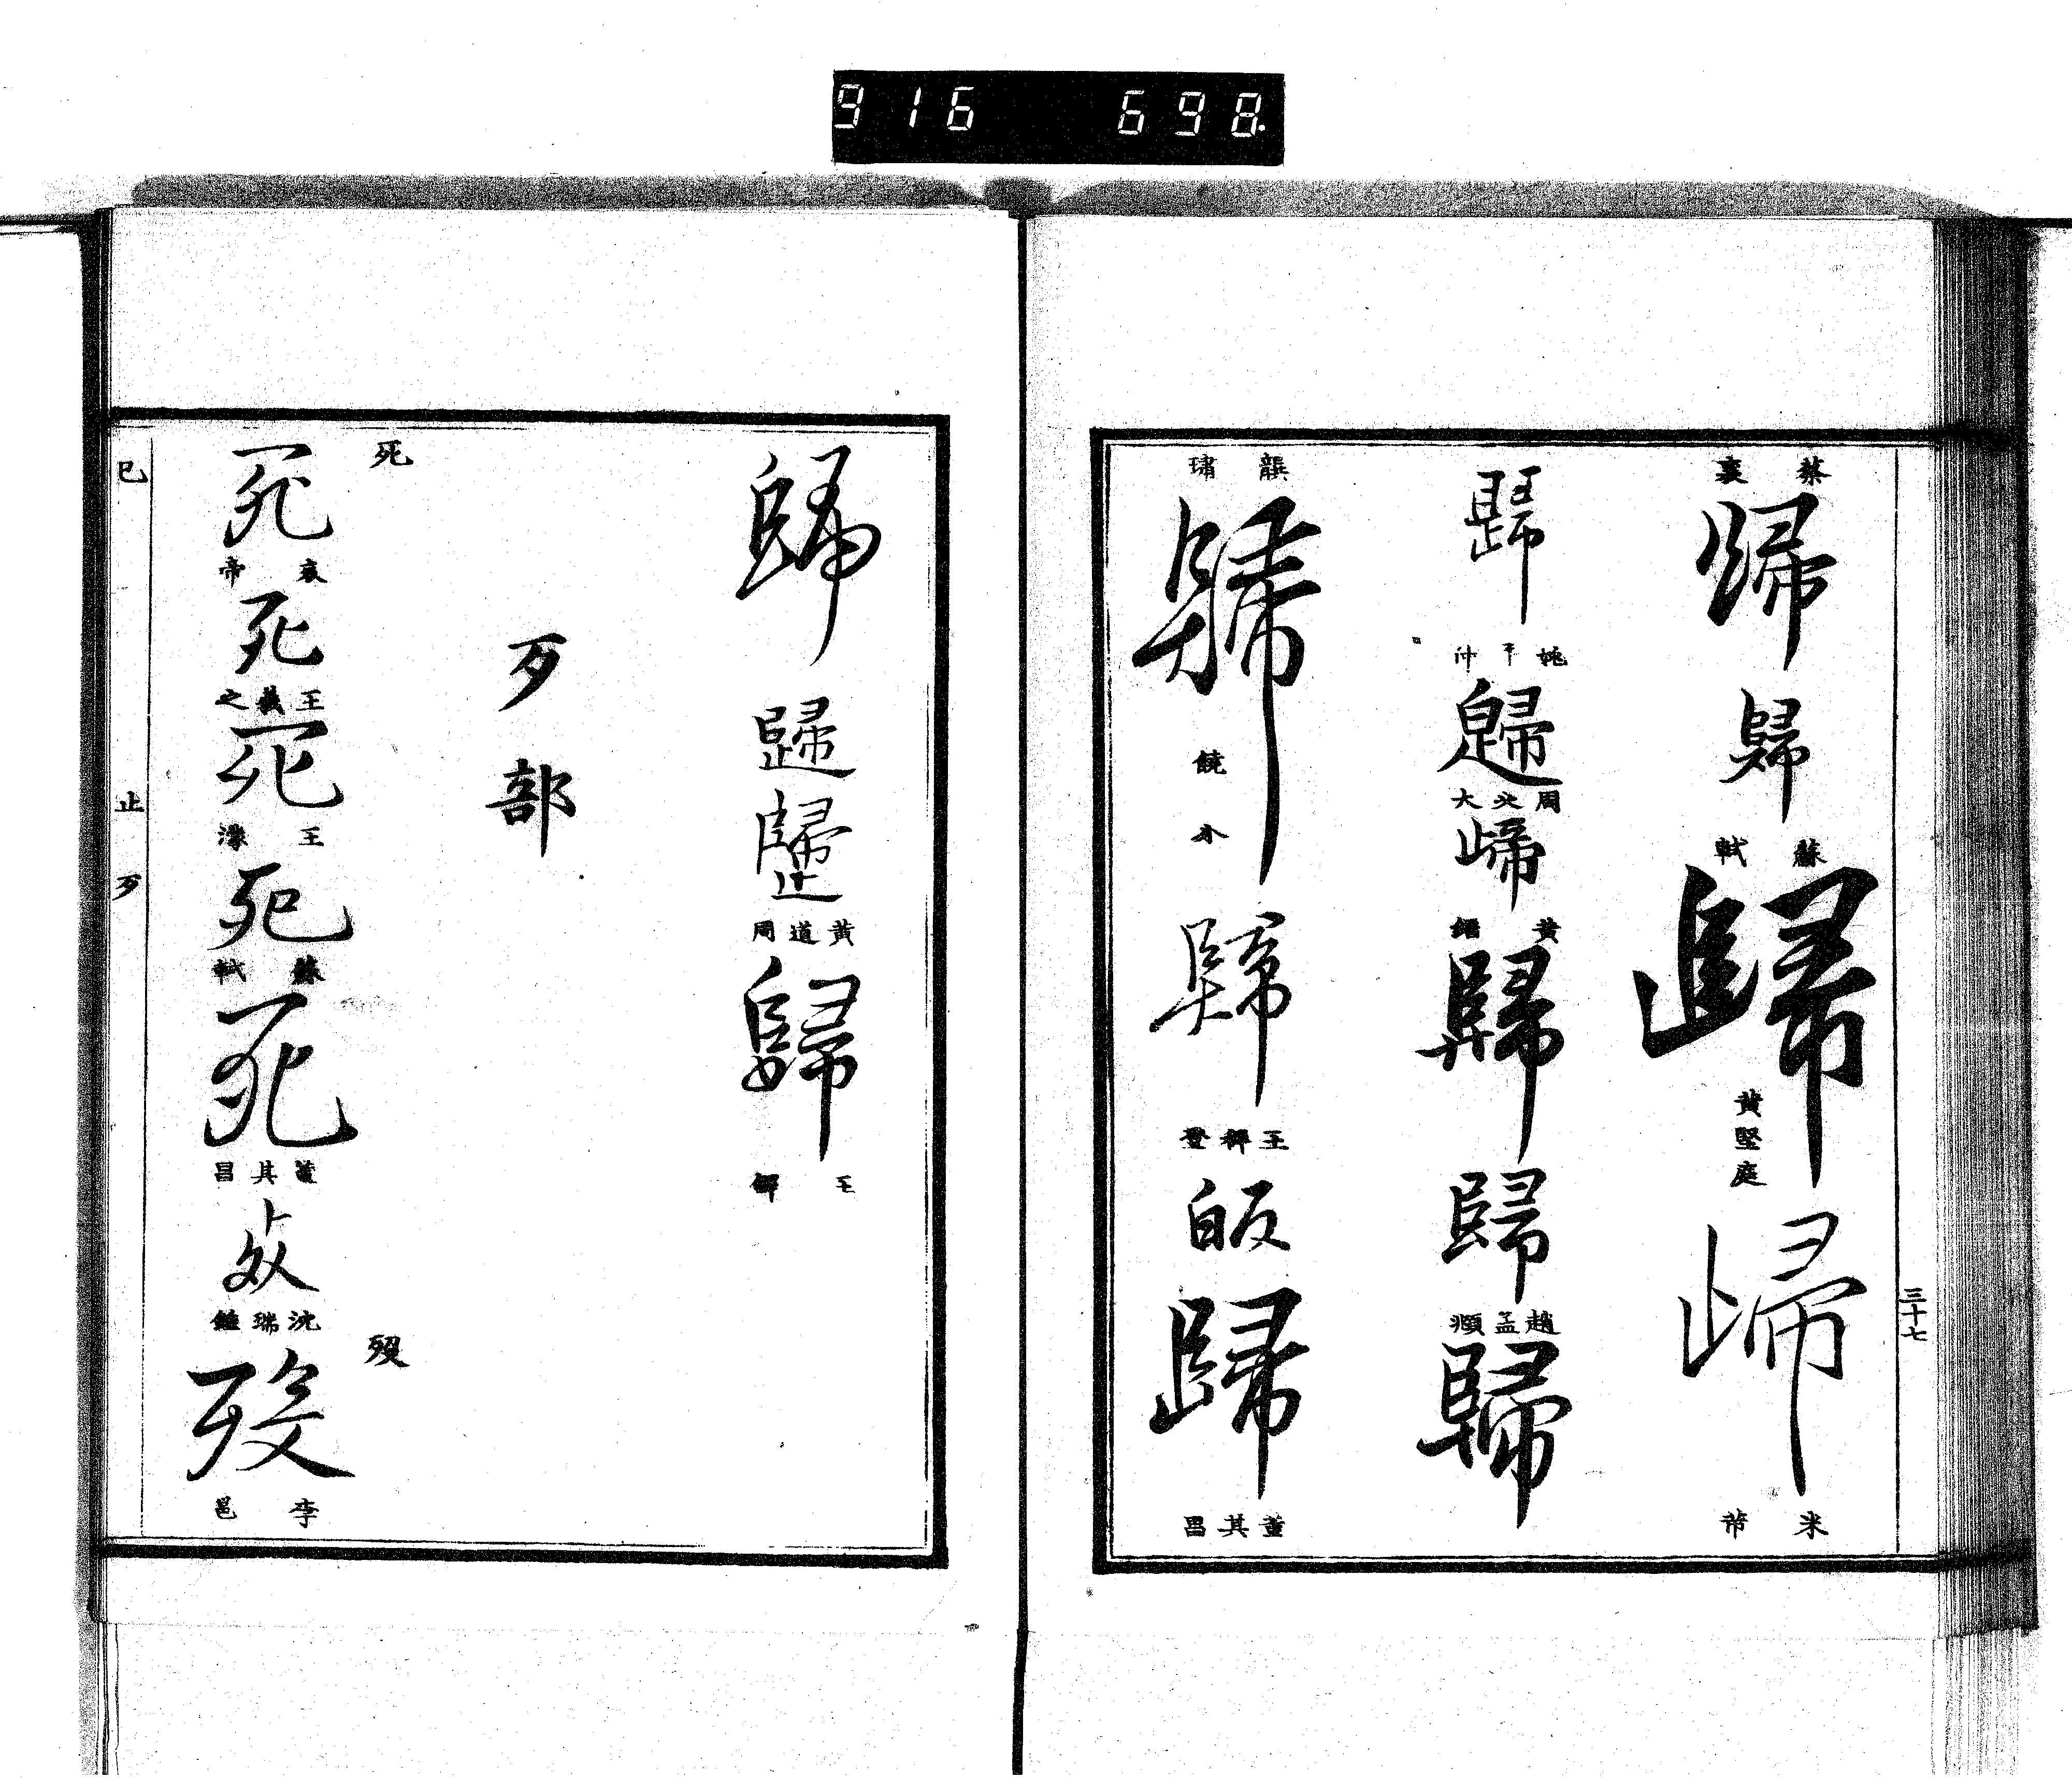 916 698.
三十七
歸
蔡襄
歸
蘇軾
歸
黃堅庭
歸
米芾
歸
歸
周必大
歸
黃
歸
歸
趙孟頫
歸
歸
饒介
歸
王穉登
皈
歸
董其昌
歸
歸
歸
黃道周
歸
王鐸
歹部
死
死
哀帝
死
王羲之
死
王濛
死
蘇軾
死
董其昌
沈瑞鍾
歿
歿
李邕
巳
止歹